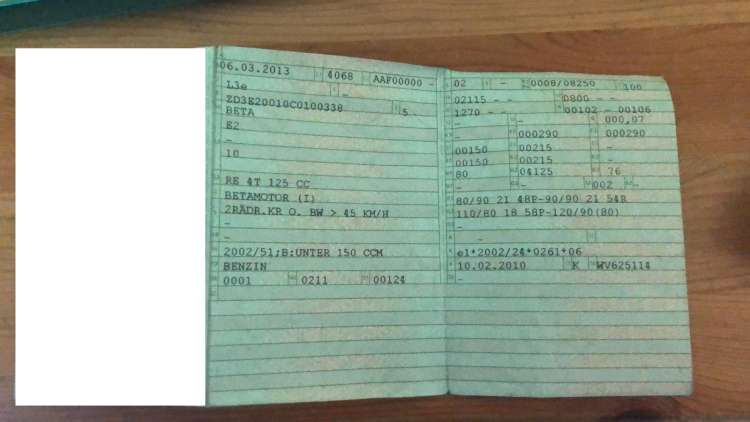 06.03.2013 4068 AAF00000 -
L3e -
ZD3E20010C0100338 5
BETA
E2
-
10
RE 4T 125 CC
BETAMOTOR (I)
2RÄDR.KR O. BW > 45 KM/H
-
-
2002/51;B:UNTER 150 CCM
BENZIN
0001 0211 00124
02 - 0008/08250 100
02115 - - 0800 - -
1270 - - 00102 - 00106
- - 000,07
- 000290 000290
00150 00215 -
00150 00215 -
80 04125 76
- - 002 -
80/90 21 48P-90/90 21 54R
110/80 18 58P-120/90(80)
-
-
e1*2002/24*0261*06
10.02.2010 K WV625114
-